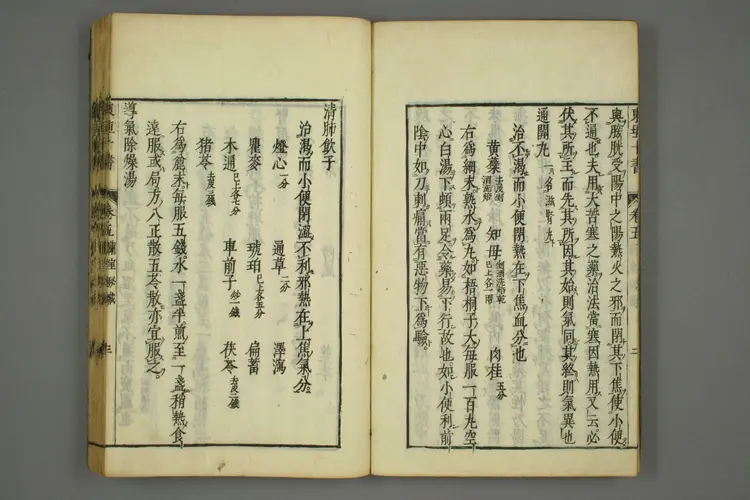 與膀胱受陽中之陽熱火之邪而閉其下焦使小便
不通也夫用大苦寒之藥治法當寒因熱用又云必
伏其所主而先其所因其始則氣同其終則氣異也
通關丸 一名滋腎丸
治不渴而小便閉熱在下焦血分也
黃蘗 知母 已上各一兩 肉桂 五分
右為細末熟水為丸如梧桐子大每服一百丸空
心白湯下頓兩足令藥易下行故也如小便利前
陰中如刀刺痛當有惡物下為驗
清肺飲子
治渴而小便閉澁不利邪熱在上焦氣分
燈心 一分 通草 二分 澤瀉
瞿麥 琥珀 已上各五分 萹蓄
木通 已上各七分 車前子 炒一錢 茯苓 去皮二錢
猪苓 去皮二錢
右為麄末每服五錢水一盞半煎至一盞稍熱食
遠服或局方八正散五苓散亦宜服之
導氣除燥湯
卷五